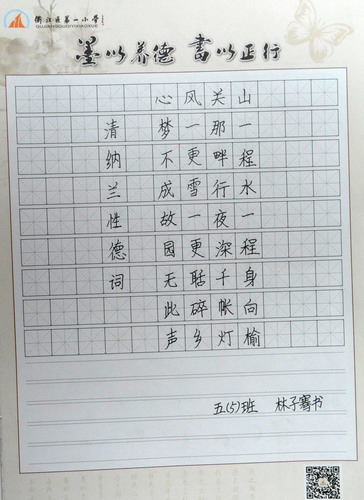 衢江区第一小学
QUJIANGQUDIYIXIAOXUE
墨以养德 書以正行
山一程水一程身向榆
关那畔行夜深千帐灯
风一更雪一更聒碎乡
心梦不成故园无此声
清纳兰性德词
五(5)班 林子骞书